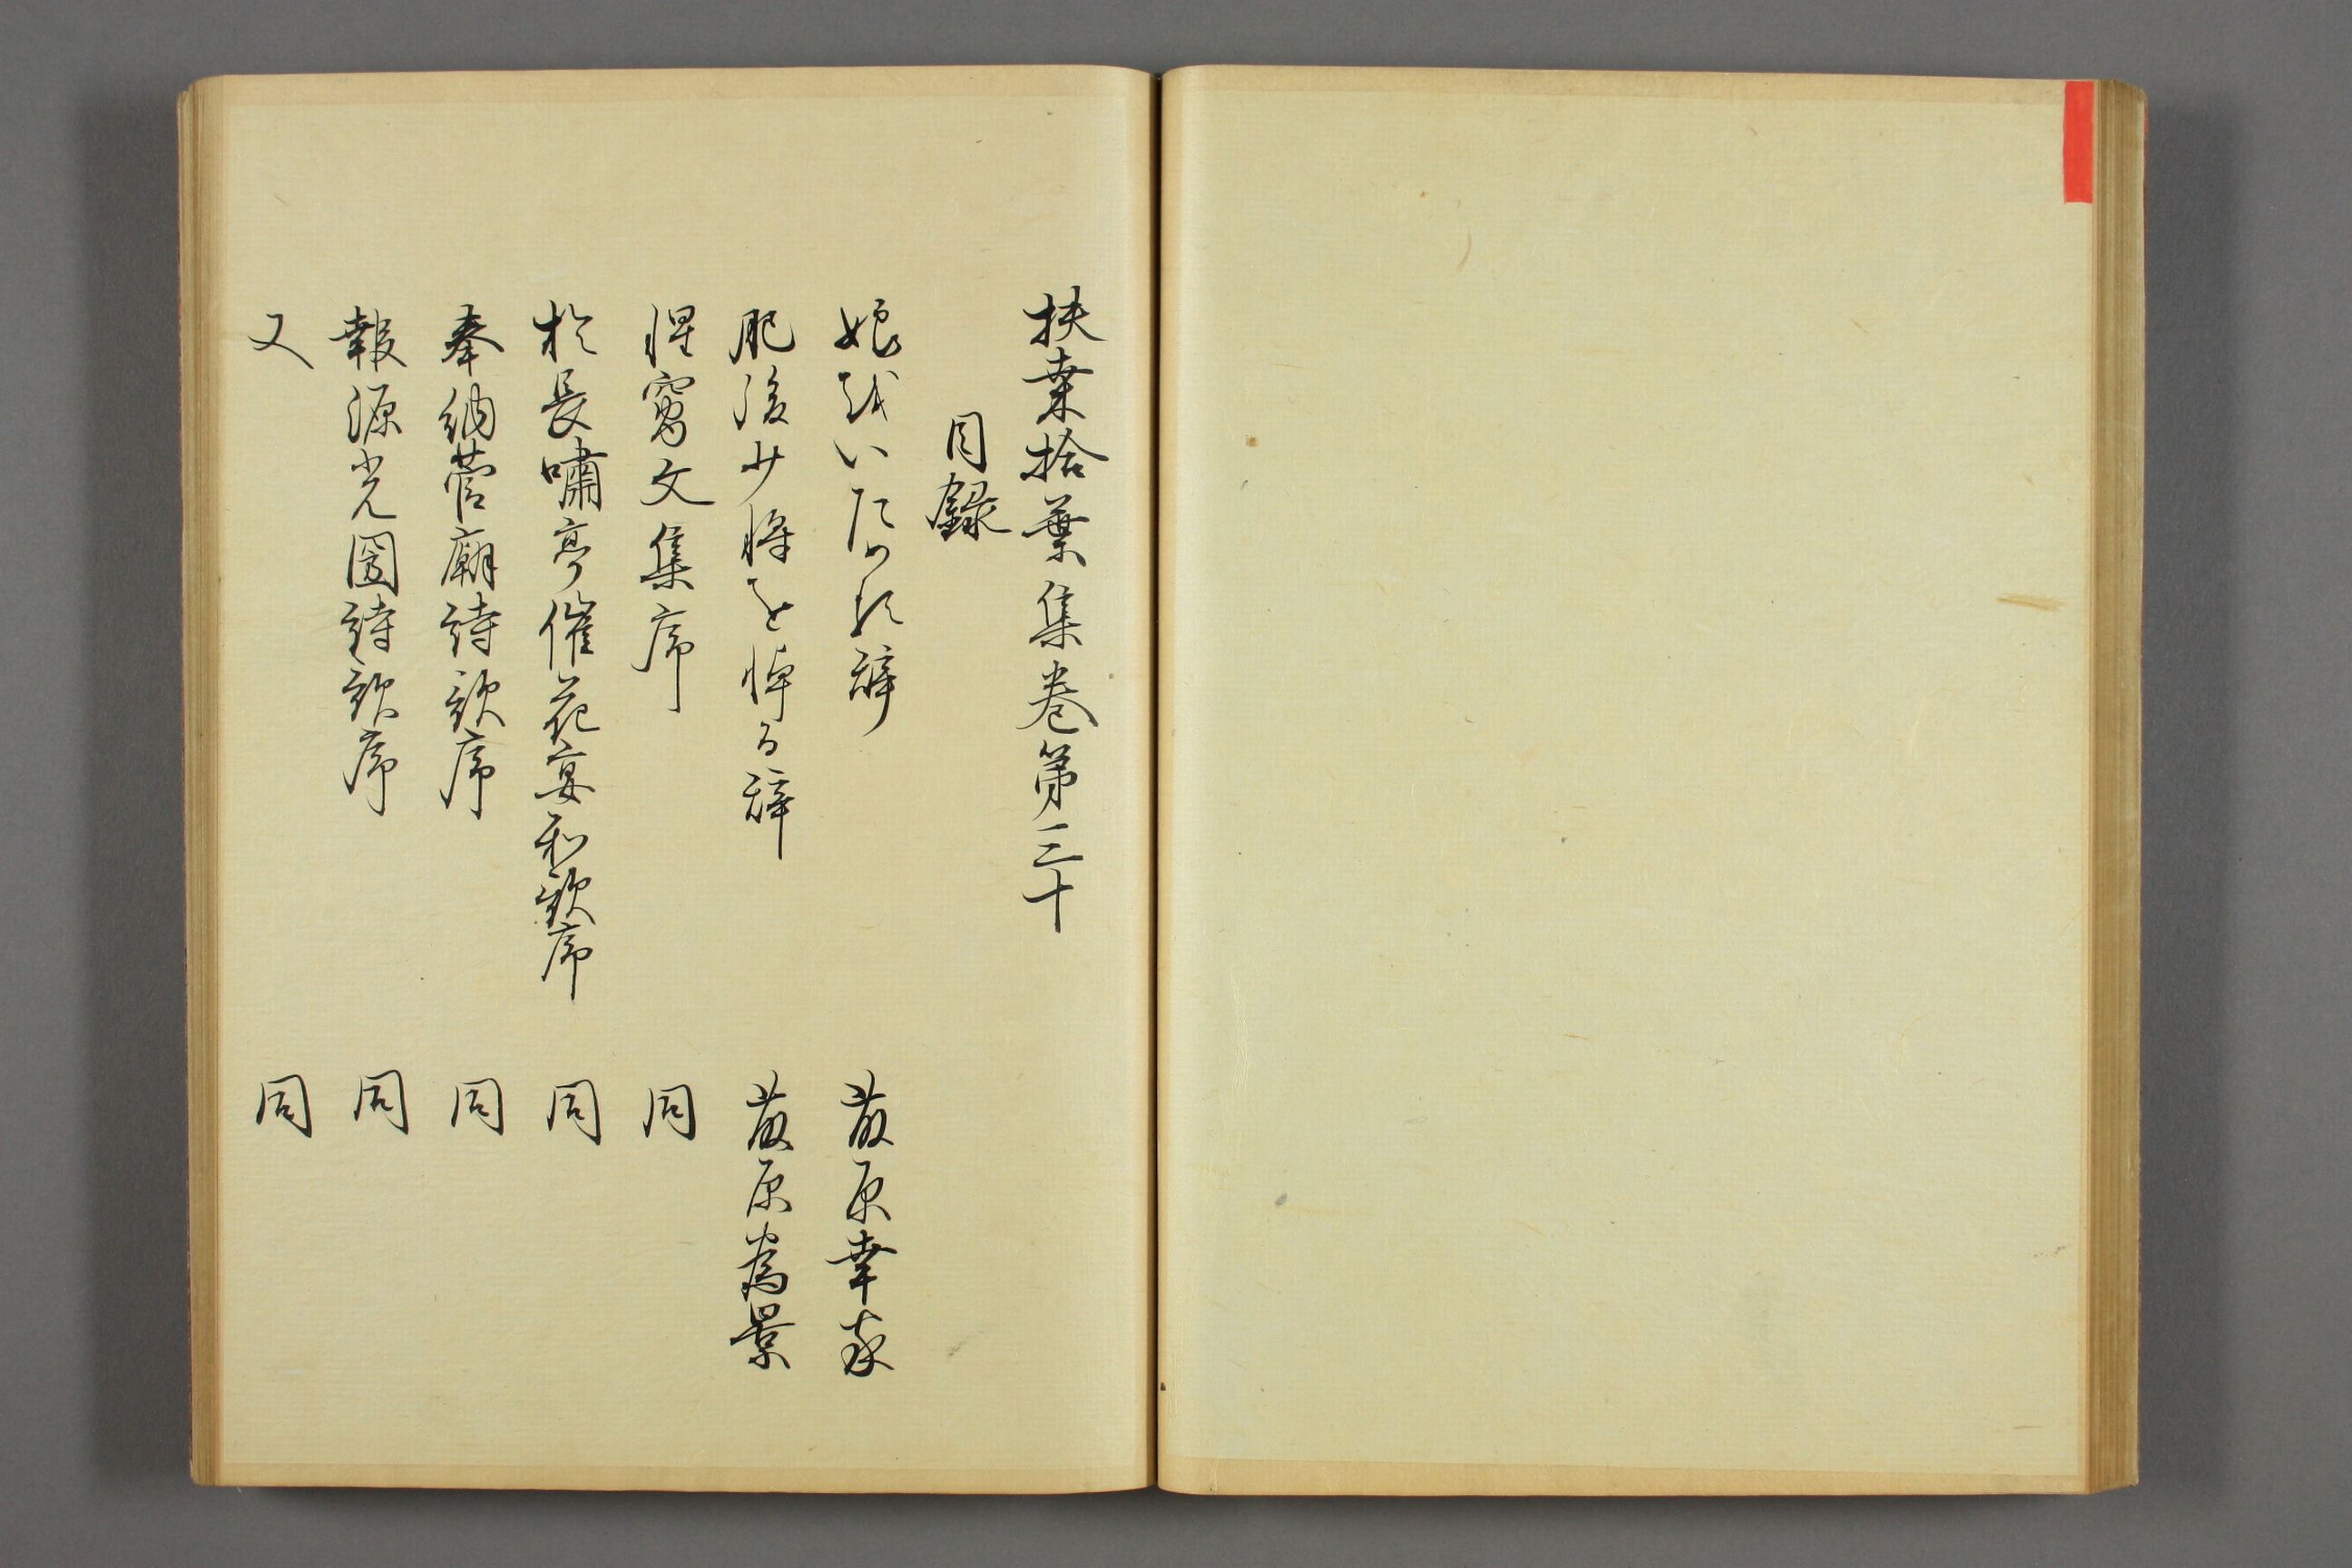 扶桒拾葉集巻第三十
目録
娘越いためる辞 藤原幸家
肥後少将を悼る辞 藤原為景
惺窩文集序 同
於長嘯亭催花宴和歌序 同
奉納菅廟詩歌序 同
報源光圀詩歌序 同
又 同